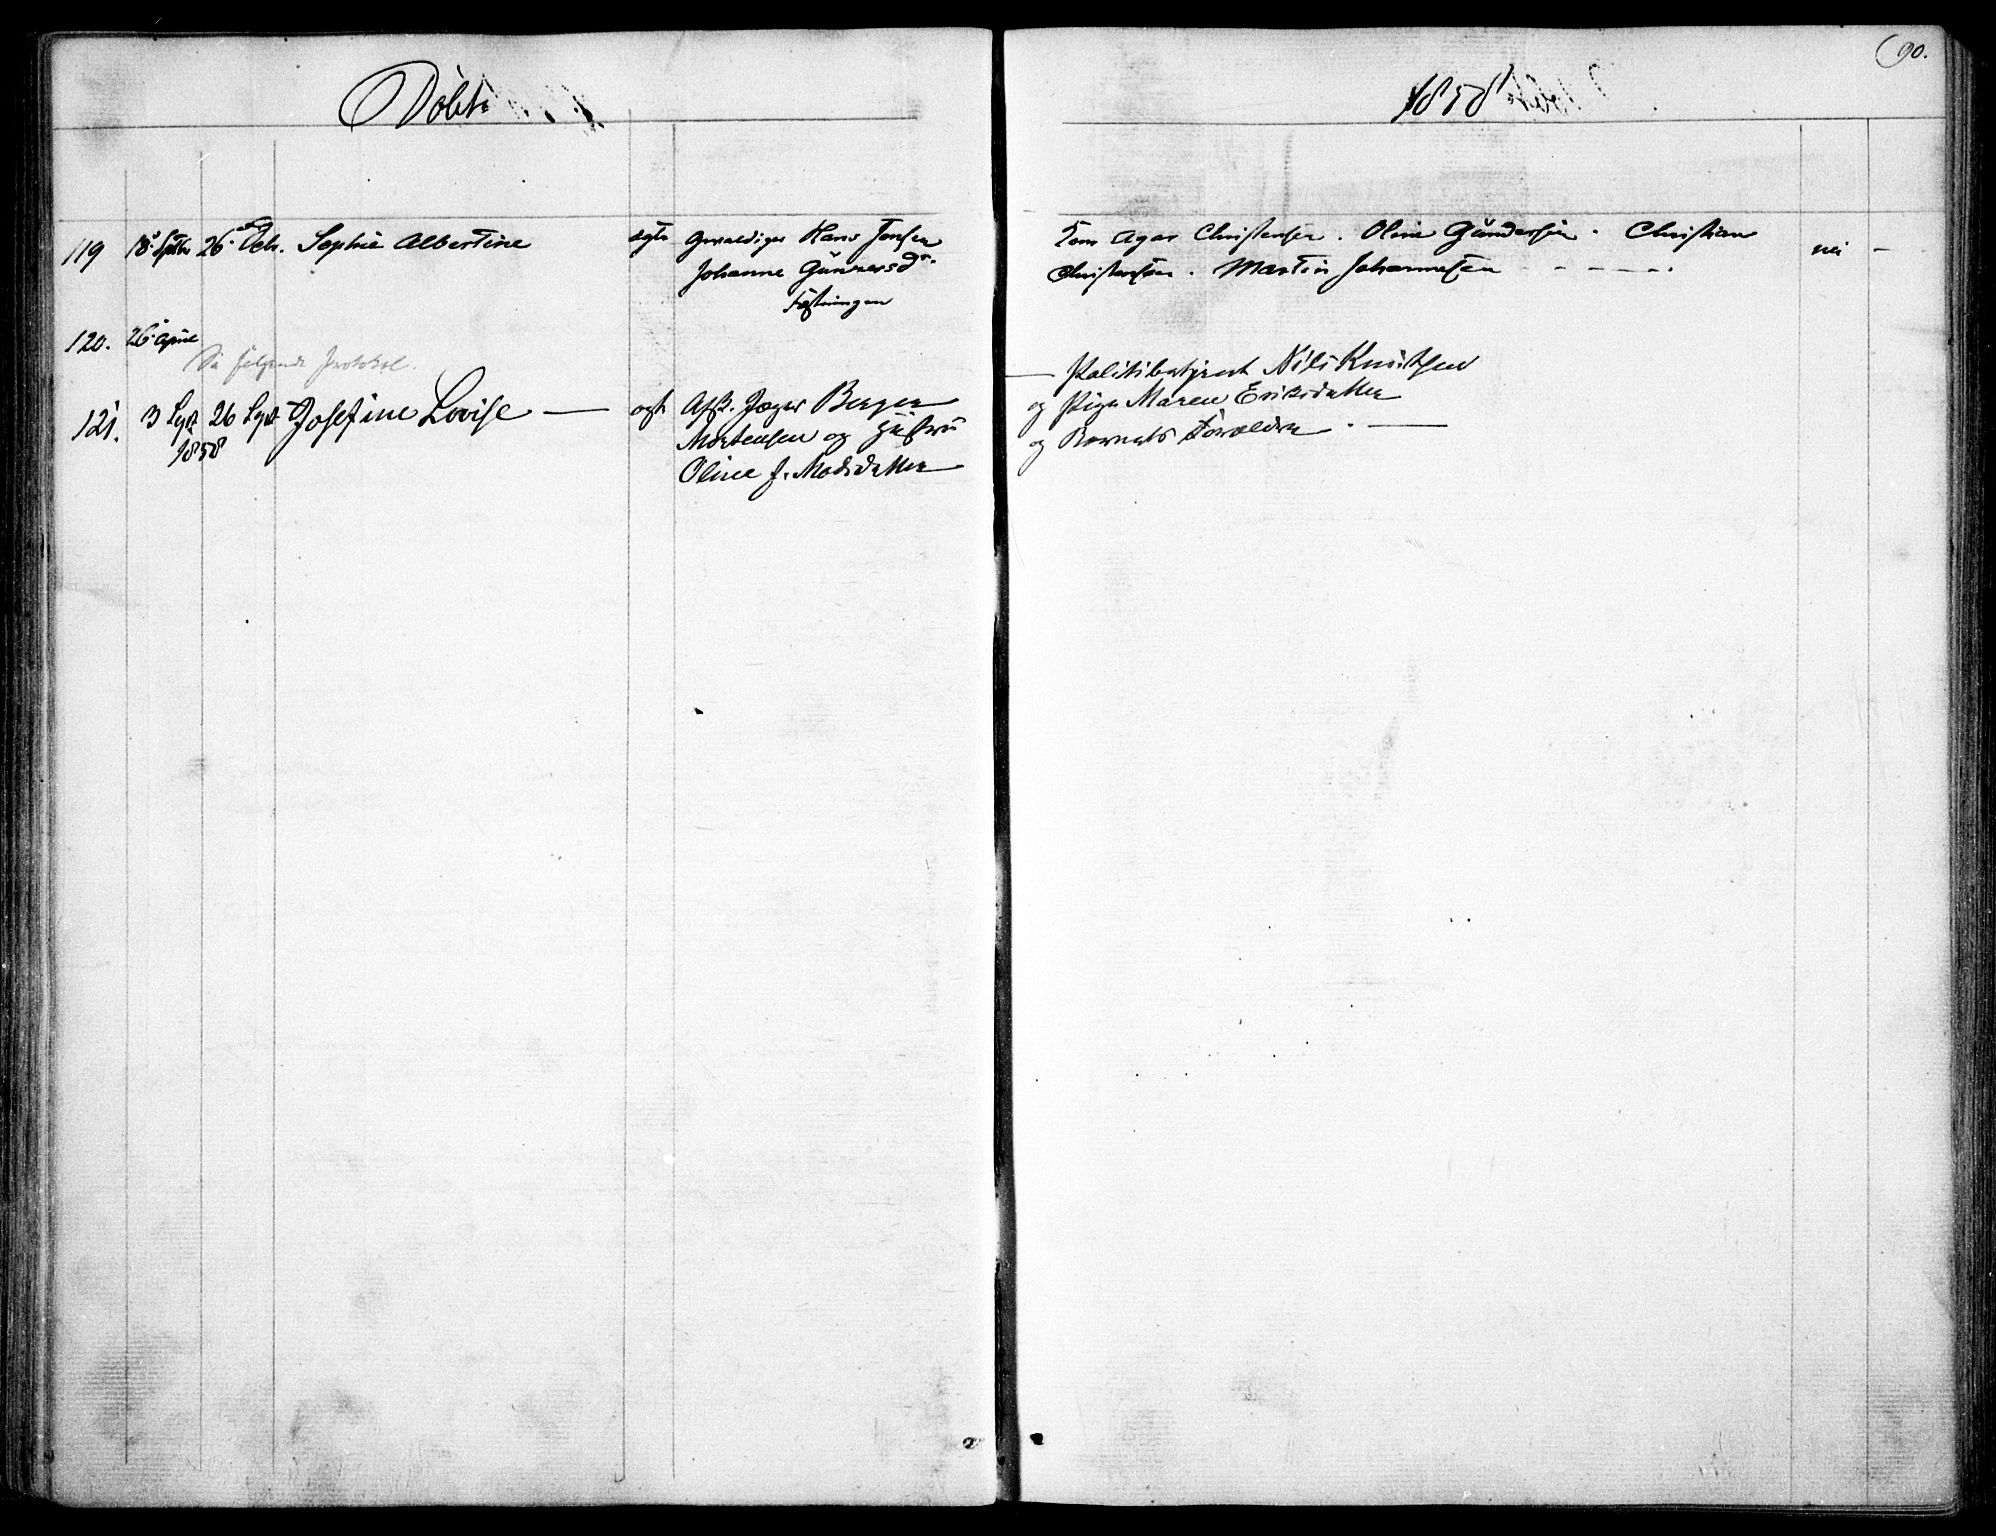 Døbte
1858
90.
119 18 Septbr 26 Octb. Sophie Albertine ægte Gevaldiger Hans Jensen
Johanne Gunnersd.
Fæstningen
Christensen . Oline Gundersen . Christian
Christensen . Martin Johannesen - - - - - .
nei -
120. 26 April
Se følgende Protokol.
121. 3 Sept 26 Sept Josefine Lovise — ægt. Afsk. Jæger Berger
1858
Mortensen og Hustru
Oline f. Madsdatter
— Politibetjent Nils Knudsen
og Pige Maren Eriksdatter
og Barnets Forældre . —